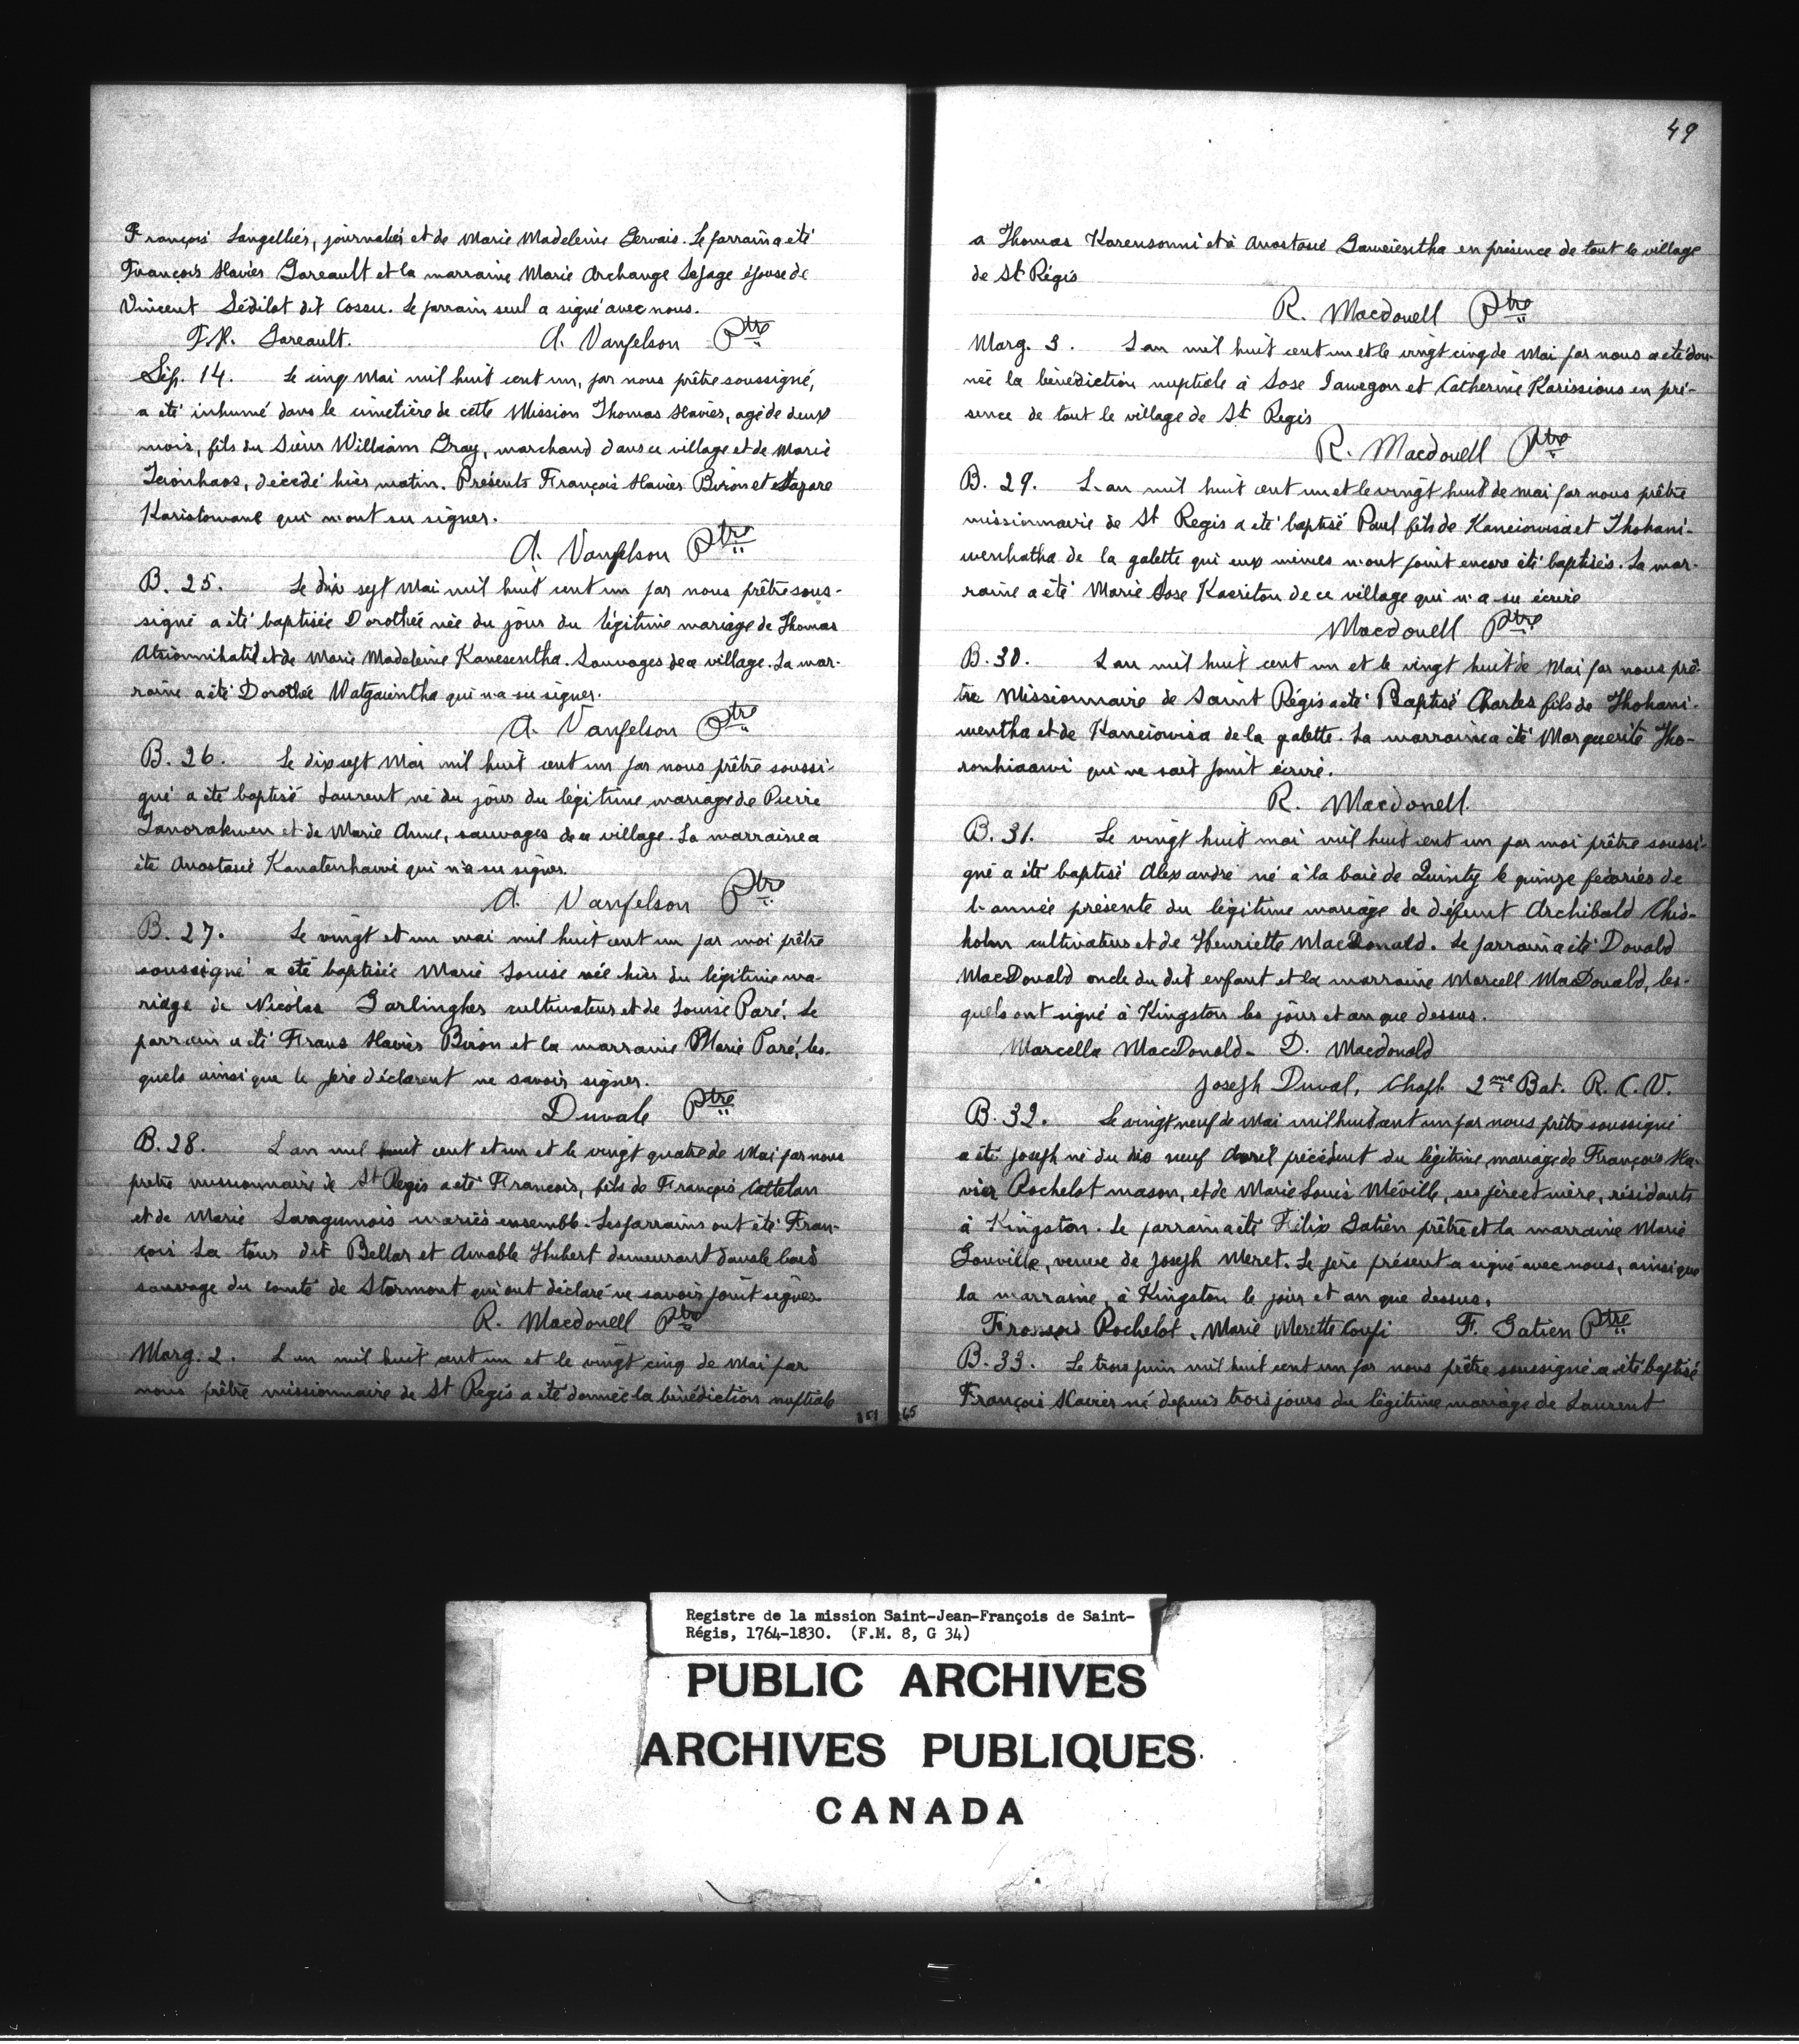 François Langellier, journalier et de Marie Madeleine Gervais. Le parrain a été
François Xavier Gareault et la marraine Marie Archange Lepage épouse de
Vincent Sédilot dit Cossu. Le parrain seul a signé avec nous.
F.X. Gareault. A. Vanfelson Ptre
Sép. 14. Le cinq Mai mil huit cent un, par nous prêtre soussigné,
a été inhumé dans le cimetière de cette Mission Thomas Xavier, agé de deux
mois, fils du Sieur William Gray, marchand dans ce village et de Marie
décédé hier matin. Présents François Xavier Biron et Lazare
Karistowane qui n'ont su signer.
A. Vanfelson Ptre
B. 25. Le dix sept Mai mil huit cent un par nous prêtre sous-
signé a été baptisée Dorothée née du jour du légitime mariage de Thomas
et de Marie Madeleine Kanesentha. Sauvages de ce village. La mar-
raine a été Dorothée Watgaientha qui n'a su signer.
A. Vanfelson Ptre
B. 26. Le dix sept Mai mil huit cent un par nous prêtre soussi-
gné a été baptisé Laurent né du jour du légitime mariage de Pierre
Tanorakwen et de Marie Anne, sauvages de ce village. La marraine a
été Anastasie Kanatenhawi qui n'a su signer.
A. Vanfelson Ptre
B. 27. Le vingt et un mai mil huit cent un par moi prêtre
soussigné a été baptisée Marie Louise née hier du légitime ma-
riage de Nicolas Garlingher cultivateur et de Louise Paré. Le
parrain a été Frans Xavier Biron et la marraine Marie Paré, les-
quels ainsi que le père déclarent ne savoir signer.
Duvale Ptre
B. 28. L'an mil huit cent et un et le vingt quatre de Mai par nous
pretre missionnaire de St Regis a été François, fils de François Cattelan
et de Marie mariés ensemble. Les parrains ont été Fran-
çois La tour dit Bellar et Amable Hubert demeurant dans le bois
sauvage du comté de Stormont qui ont déclaré ne savoir point signer
R. Macdonell Ptre
Marg. 2. L'an mil huit cent un et le vingt cinq de Mai par
nous prêtre missionnaire de St Regis a été donnée la bénédiction nuptiale
151
49
a Thomas Karensonni et à Anastasie Gaweientha en présence de tout le village
de St Régis
R. Macdonell Ptre
Marg. 3. L'an mil huit cent un et le vingt cinq de Mai par nous a été don-
née la bénédiction nuptiale à Sose Tawegon et Catherine Karissious en pré-
sence de tout le village de St Regis
R. Macdonell Ptre
B. 29. L'an mil huit cent un et le vingt huit de mai par nous prêtre
missionnaire de St Regis a été baptisé Paul fils de Kaneiowisa et Thohani-
wenhatha de la galette qui eux mêmes n'ont point encore été baptisés. La mar-
raine a été Marie Sose Kaeriton de ce village qui n'a su écrire
Macdonell Ptre
B. 30. L'an mil huit cent un et le vingt huit de Mai par nous prê-
tre Missionnaire de Saint Régis a été Baptisé Charles fils de Thohani-
wentha et de Kaneiowisa de la galette. La marraine a été Marguerite Tho-
ronhiaawi qui ne sait point écrire.
R. Macdonell.
B. 31. Le vingt huit mai mil huit cent un par moi prêtre soussi-
gné a été baptisé Alexandre né à la baie de Quinty le quinze fevrier de
l'année présente du légitime mariage de défunt Archibald Chis-
holm cultivateur et de Henriette MacDonald. Le parrain a été Donald
MacDonald oncle du dit enfant et la marraine Marcell MacDonald, les-
quels ont signé à Kingston les jour et an que dessus.
Marcella MacDonald. D. Macdonald
Joseph Duval, Chapl. 2me Bat. R. C. V.
B. 32. Le vingt neuf de Mai mil huit cent un par nous prêtre soussigné
a été Joseph né du dix neuf Avril précédent du légitime mariage de François Xa-
vier Rochelot mason, et de Marie Louis Méville, ses père et mère, résidants
à Kingston. Le parrain a été Félix Gatien prêtre et la marraine Marie
Gouville, veuve de Joseph Meret. Le père présent a signé avec nous, ainsi que
la marraine, à Kingston le jour et an que dessus.
François Rochelot, Marie Merette Coupi F. Gatien Ptre
B. 33. Le trois juin mil huit cent un par nous prêtre soussigné a été baptisé
François Xavier né depuis trois jours du légitime mariage de Laurent
165
Registre de la mission Saint-Jean-François de Saint-
Régis, 1764-1830. (F.M. 8, G 34)
PUBLIC ARCHIVES
ARCHIVES PUBLIQUES
CANADA